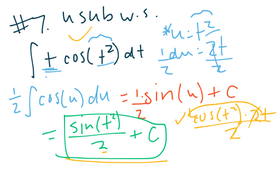 #7. u sub w.s.
∫ t cos(t²) dt
*u = t²
1/2 du = 2t/2 dt
1/2 ∫ cos(u) du = 1/2 sin(u) + C
= sin(t²)/2 + C
✓ cos(t²)/2 · 2t